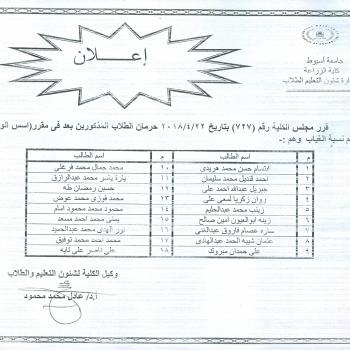 جامعة أسيوط
كلية الزراعة
إدارة شئون التعليم الطلاب
إعلان
قرر مجلس الكلية رقم (٧٢٧) بتاريخ ٢٠١٨/٤/٢٢ حرمان الطلاب المذكورين بعد فى مقرر(اسس
نسبة الغياب وهم :-
م الطالب م الطالب
١ ابتسام حسن محمد هريدى ١٠ محمد جمال محمد فرغلى
٢ احمد قنديل محمد سليمان ١١ يارة ياسر محمد عبدالرازق
٣ جبريل عبدالله احمد على ١٢ حسين رمضان طه
٤ روان زكريا لمعى على ١٣ محمد فوزى محمد عوض
٥ زينب محمد عبدالحليم ١٤ محمود محمد محمود امام
٦ زينه ابوالعيون امين صالح ١٥ يمنى محمد احمد مسعد
٧ ساره عصام فاروق عبدالغنى ١٦ نور الهدى محمد عبدالحميد
٨ عثمان شيبه الحمد عبدالهادى ١٧ محمد احمد محمد توفيق
٩ على حمدان مبروك ١٨ على ناصر على
وكيل الكلية لشئون التعليم والطلاب
أ.د/ عادل محمد محمود